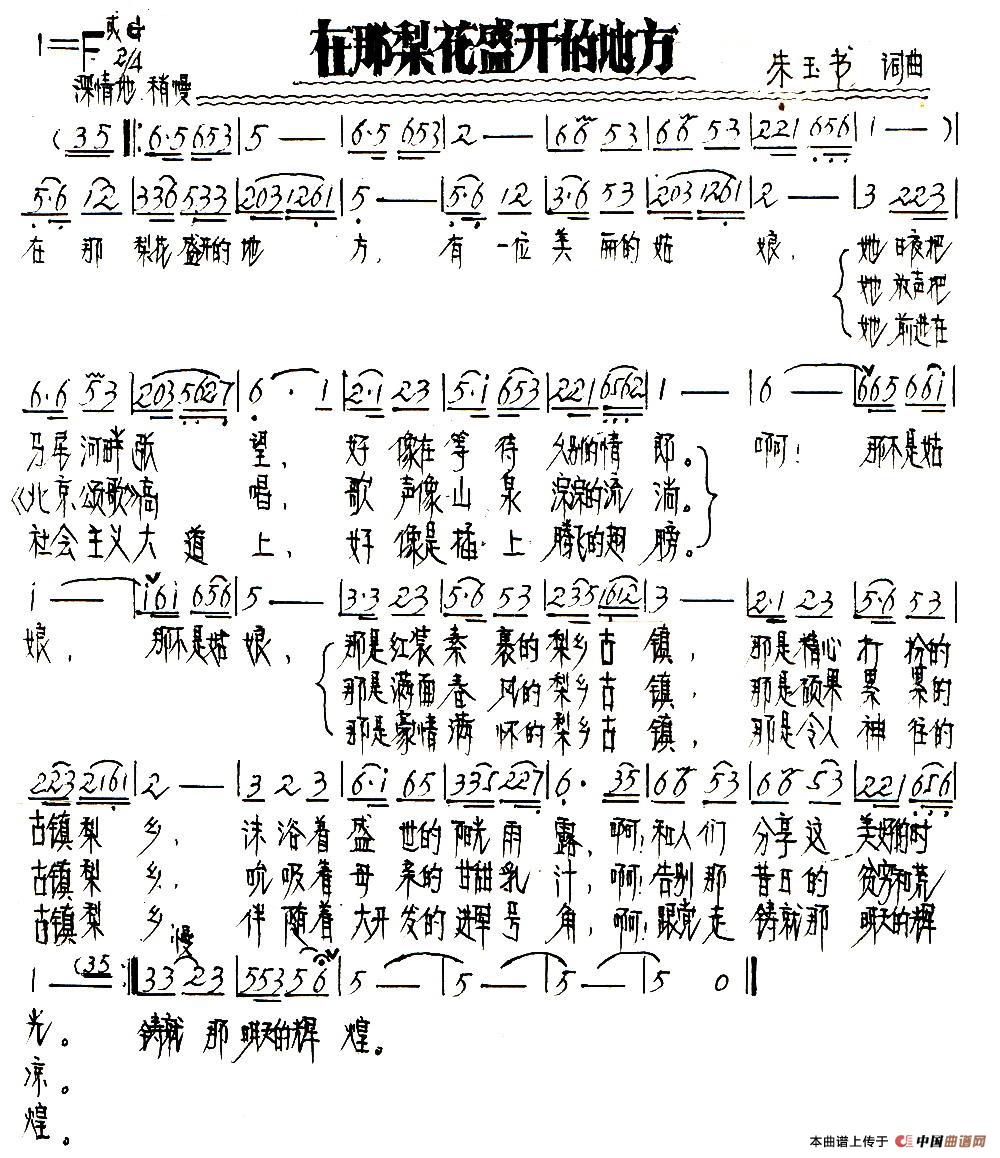 在那梨花盛开的地方
1=F或G 2/4
朱玉书 词曲
深情地 稍慢
(35 ‖: 6·5 653 | 5 — | 6·5 653 | 2 — | 66 53 | 66 53 | 221 656 | 1 — ) |
5·6 12 | 336 533 | 203 1261 | 5 — | 5·6 12 | 3·6 53 | 203 1261 | 2 — | 3 223 |
在 那 梨花 盛开的 地 方, 有 一位 美 丽的 姑 娘, 她 日夜把
她 放声把
她 前进在
6·6 53 | 203 5627 | 6 · 1 | 2·1 23 | 5·i 653 | 221 6562 | 1 — | 6 — | 665 66i |
马尾河畔 张 望, 好 像在 等 待 久别的情 郎。 啊! 那不是姑
《北京颂歌》高 唱, 歌 声像 山 泉 淙淙的流 淌。
社会主义 大 道 上, 好 像是 插 上 腾飞的翅 膀。
i — | i6i 656 | 5 — | 3·3 23 | 5·6 53 | 235 1612 | 3 — | 2·1 23 | 5·6 53 |
娘, 那不是姑 娘, 那是红装 素 裹的 梨乡古 镇, 那是精心 打 扮的
那是满面 春 风的 梨乡古 镇, 那是硕果 累 累的
那是豪情 满 怀的 梨乡古 镇, 那是令人 神 往的
223 2161 | 2 — | 3 2 3 | 6·i 65 | 335 227 | 6· 35 | 66 53 | 66 53 | 221 656 |
古镇梨 乡, 沐浴着 盛 世的 阳光雨 露, 啊!和人们 分享这 美好的时
古镇梨 乡, 吮吸着 母 亲的 甘甜乳 汁, 啊!告别那 昔日的 贫穷和荒
古镇梨 乡, 伴随着 大开发的 进军号 角, 啊!跟党走 铸就那 明天的辉
慢
1 — (35 :‖ 33 23 | 553 56 | 5 — | 5 — | 5 — | 5 0 ‖
光。 铸就 那 明天的辉 煌。
凉。
煌。
本曲谱上传于 中国曲谱网